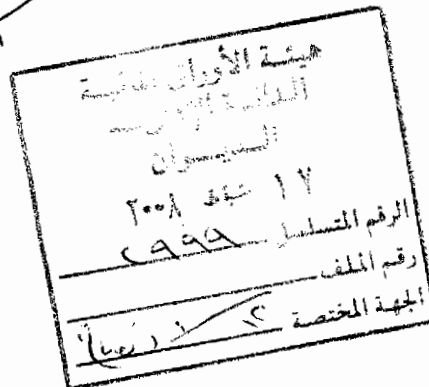 هيئة الأوراق المالية
الدائرة الإدارية
الديوان
١٧ شباط ٢٠٠٨
الرقم المتسلسل ٢٩٩٩
رقم الملف
الجهة المختصة